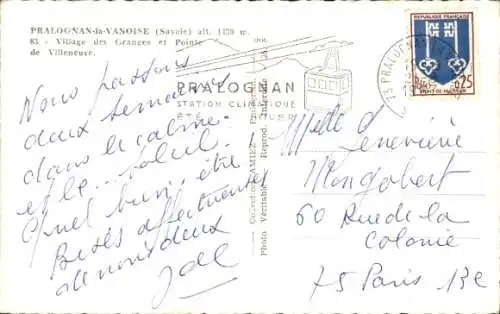 PRALOGNAN-la-VANOISE (Savoie) alt. 1430 m.
83 - Village des Granges et Pointe
de Villeneuve.
PRALOGNAN
STATION CLIMATIQUE
ÉTÉ HIVER
73 PRALOGNAN
RÉPUBLIQUE FRANÇAISE
0,25
MONT-DE-MARSAN
Nous passons
deux semaines
dans le calme
et le... soleil.
Quel bien être
Bises affectueuses
de nous deux
Photo Véritable Reprod. Interdite
Melle Geneviève
Mongobert
60 Rue de la
Colonie
75 Paris 13e